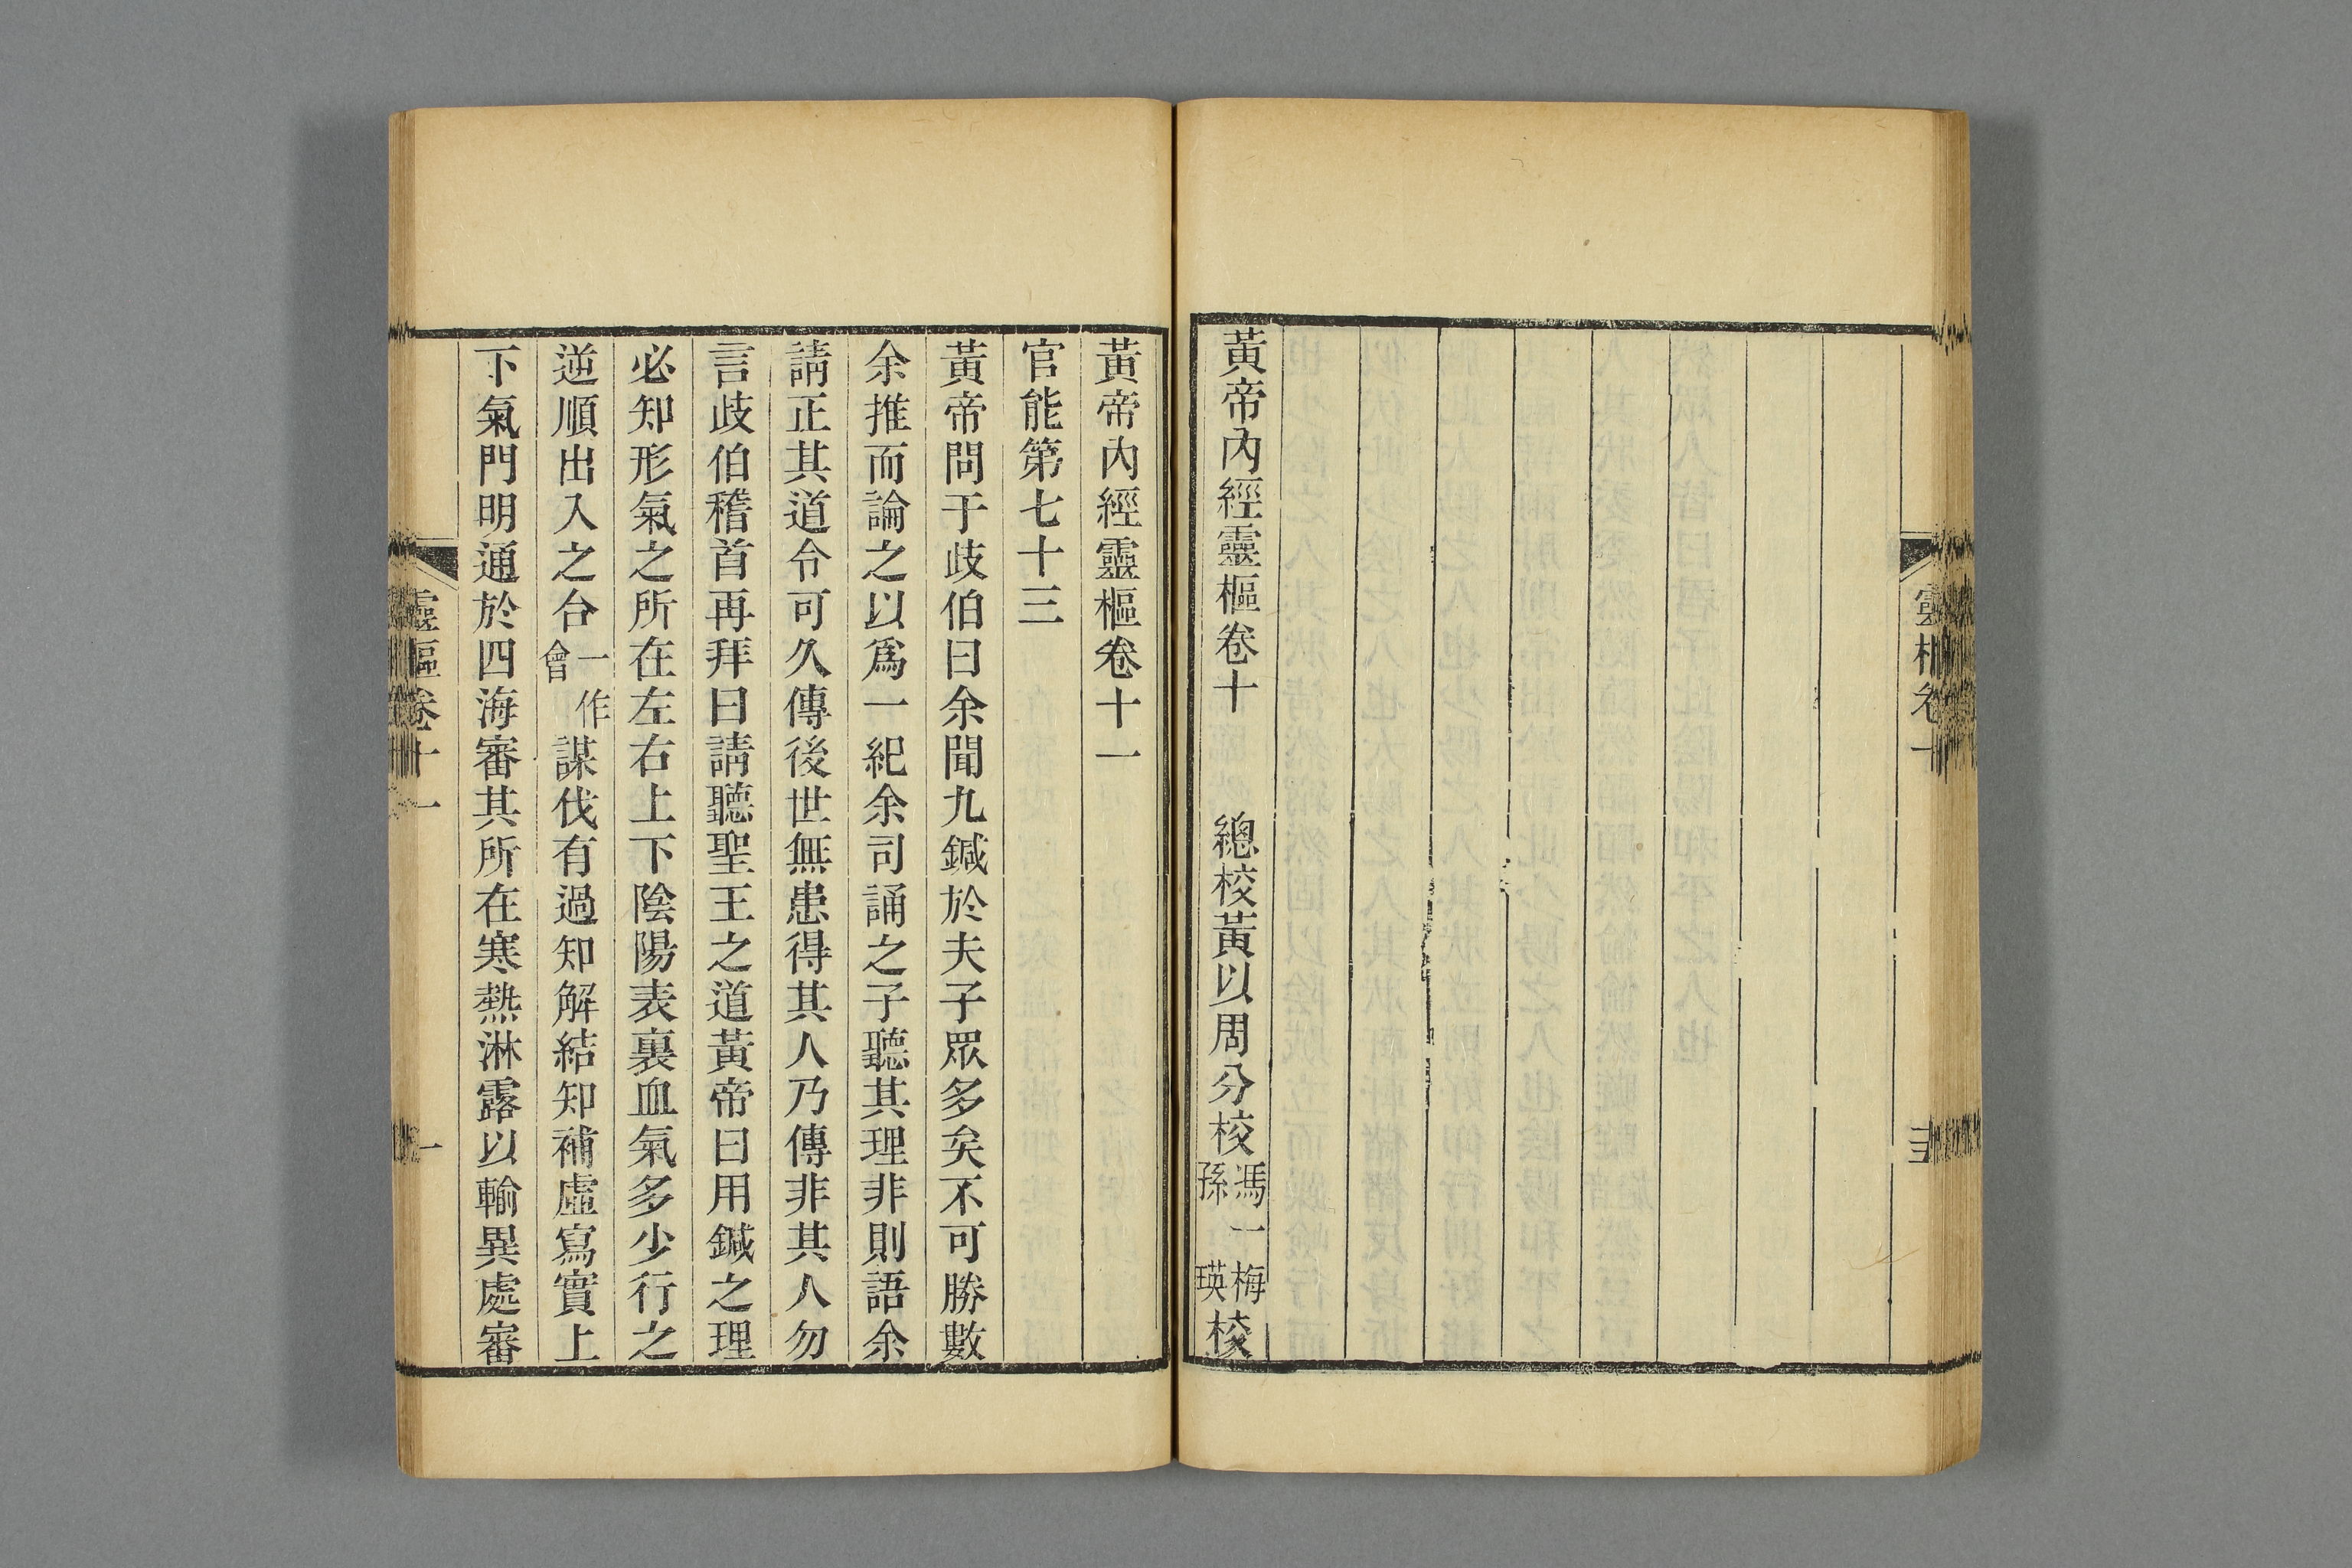 靈樞卷十
黃帝內經靈樞卷十 總校黃以周分校馮一梅孫瑛校
黃帝內經靈樞卷十一
官能第七十三
黃帝問于歧伯曰余聞九鍼於夫子眾多矣不可勝數
余推而論之以爲一紀余司誦之子聽其理非則語余
請正其道令可久傳後世無患得其人乃傳非其人勿
言歧伯稽首再拜曰請聽聖王之道黃帝曰用鍼之理
必知形氣之所在左右上下陰陽表裏血氣多少行之
逆順出入之合一作會謀伐有過知解結知補虛寫實上
下氣門明通於四海審其所在寒熱淋露以輸異處審
靈樞卷十一
一